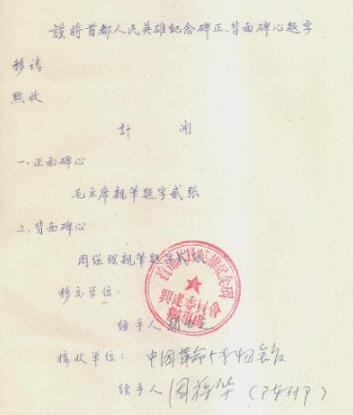 謹將首都人民英雄紀念碑正、背面碑心題字
移請
點收
計開
一.正面碑心
毛主席親筆題字貳張
二.背面碑心
周總理親筆題字貳
移交單位:
首都人民英雄紀念碑
興建委員會
辦事處
經手人
接收單位: 中国革命
經手人